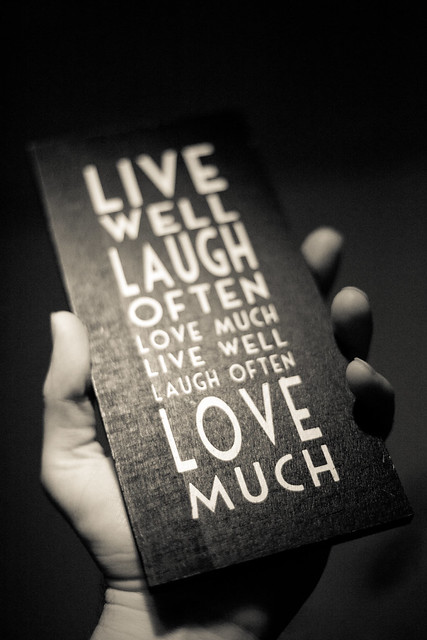 LIVE
WELL
LAUGH
OFTEN
LOVE MUCH
LIVE WELL
LAUGH OFTEN
LOVE
MUCH